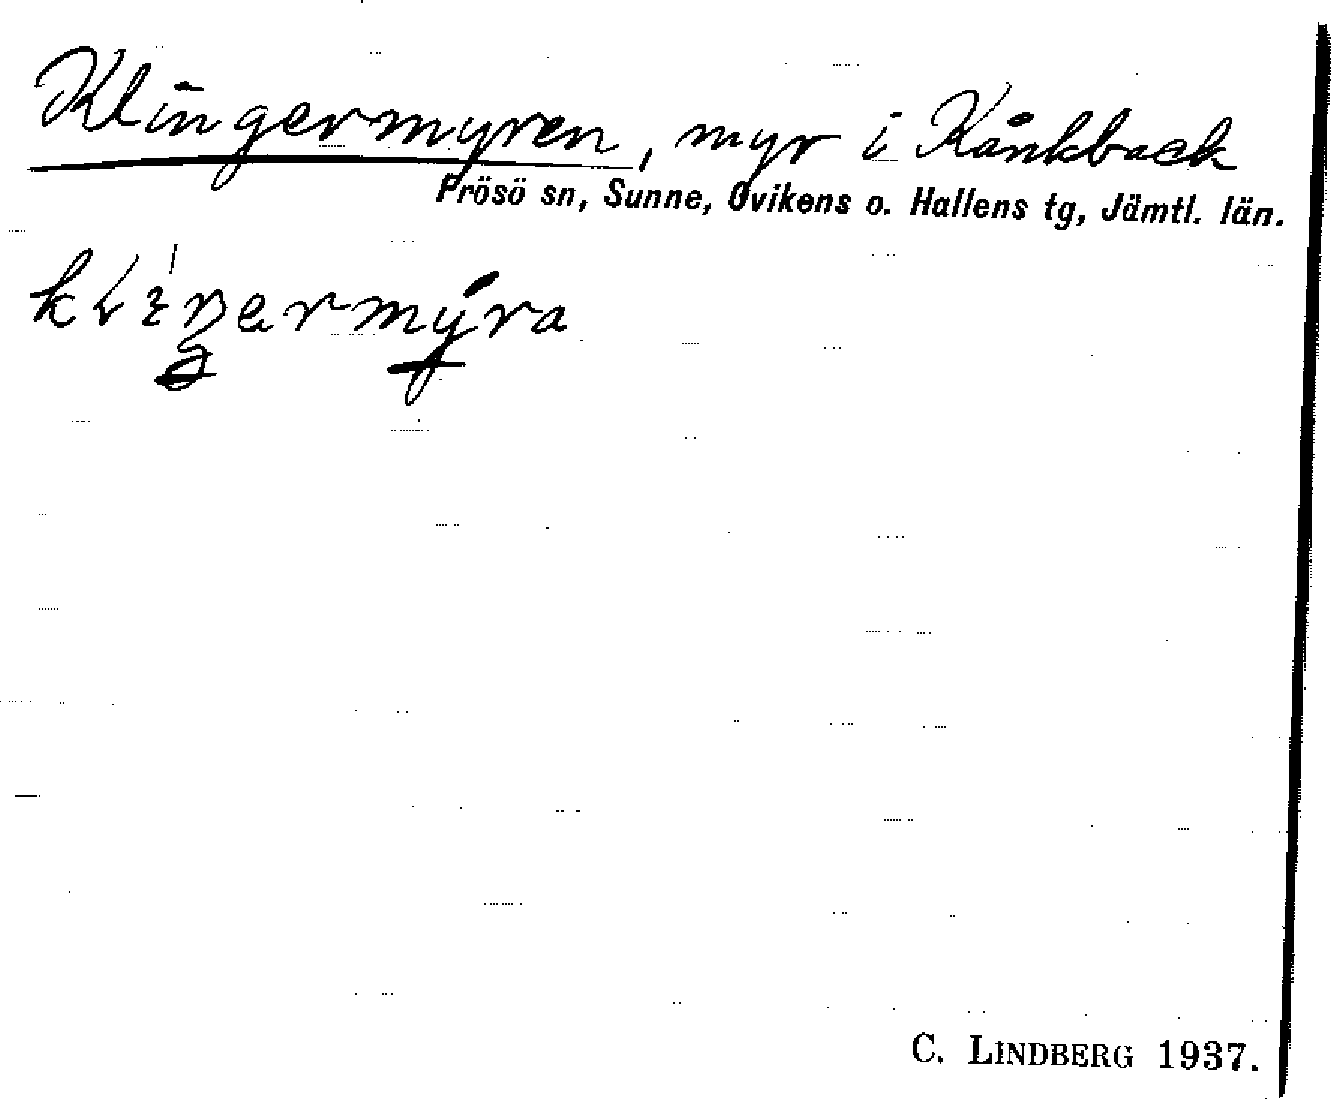 Klingermyren, myr i Kånkback
Frösö sn, Sunne, Ovikens o. Hallens tg, Jämtl. län.
C. LINDBERG 1937.